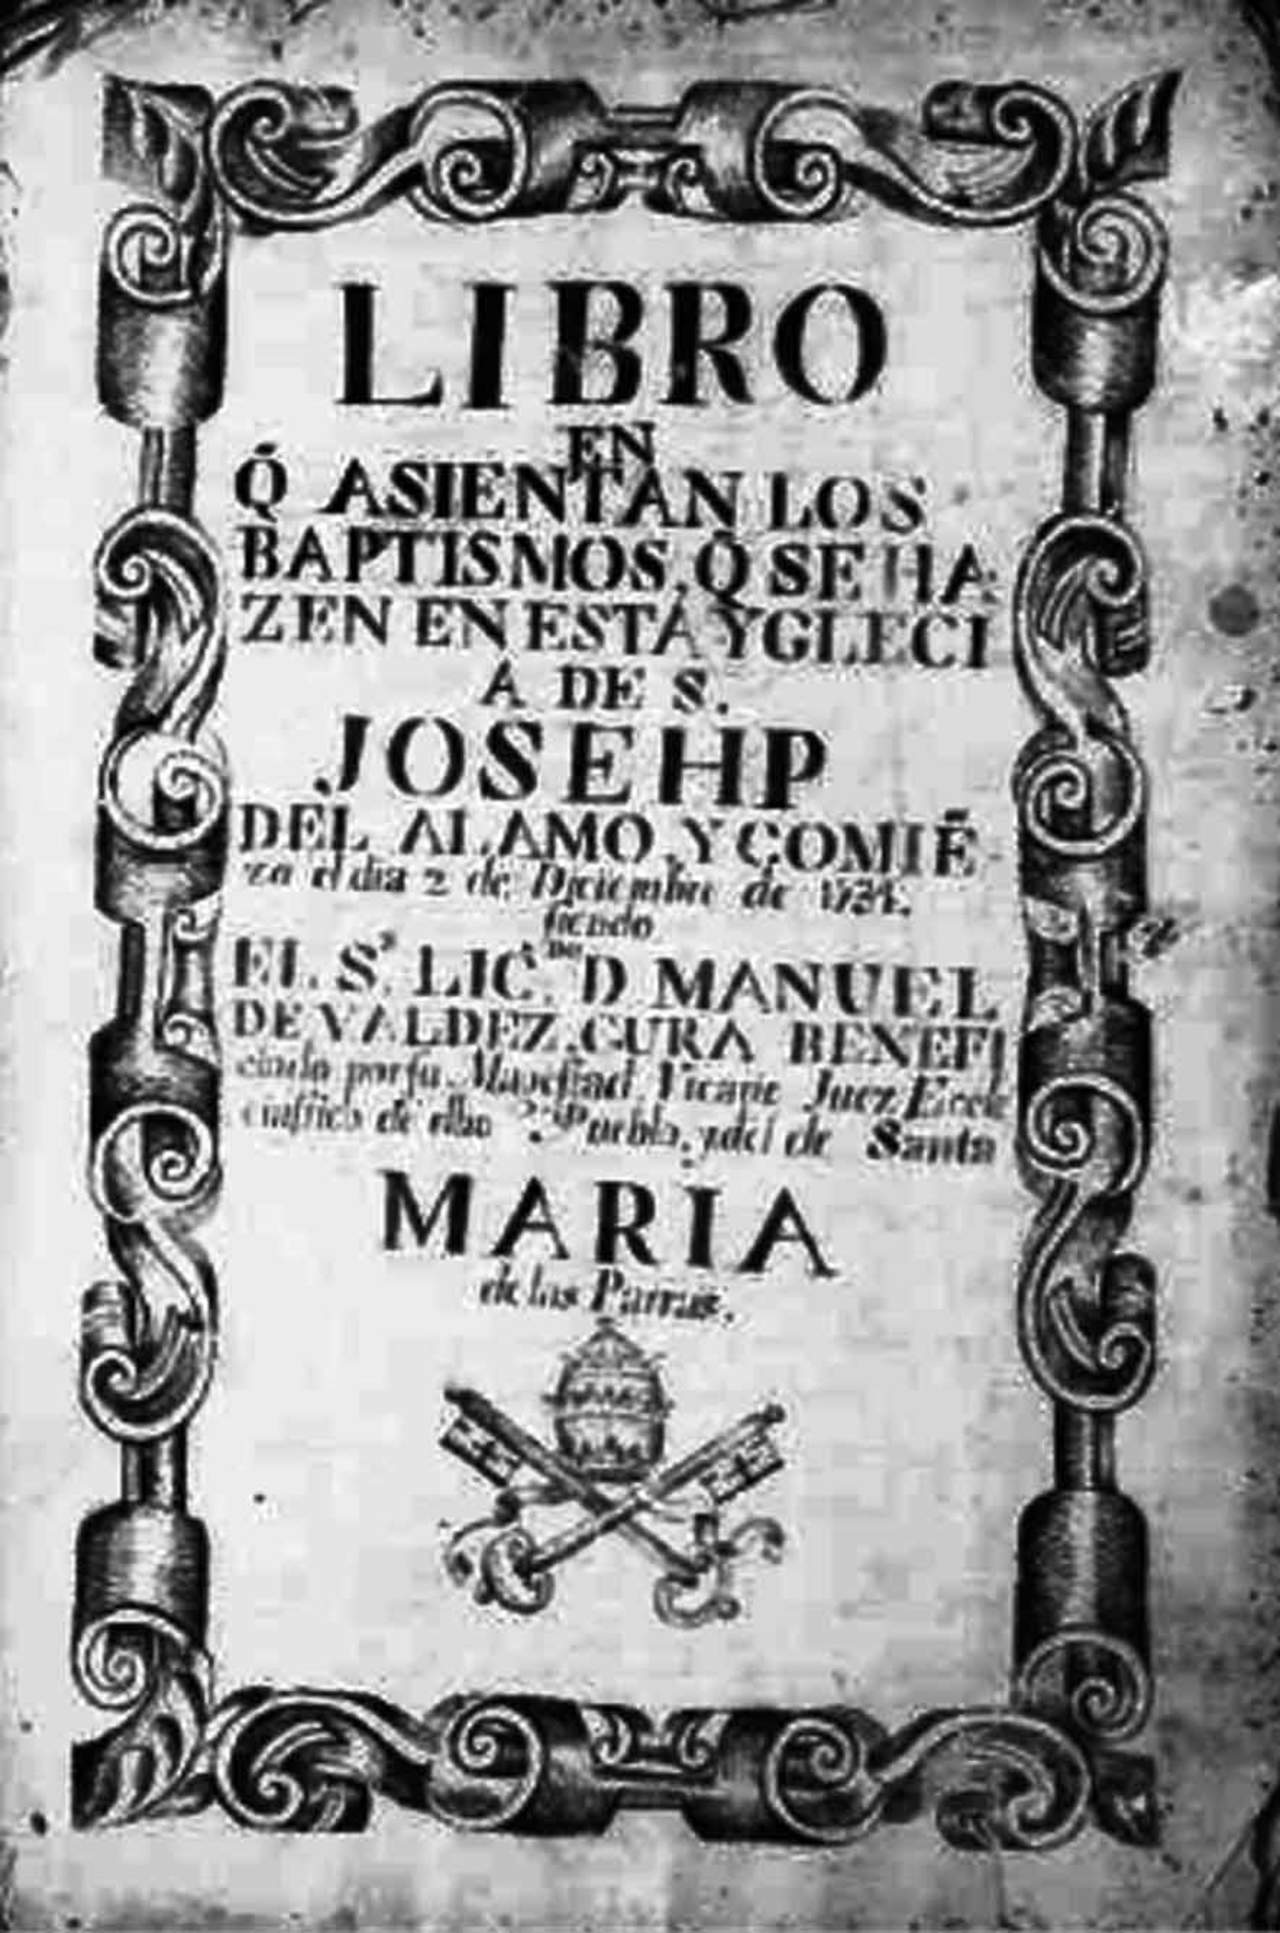 LIBRO
EN
Q̃ ASIENTAN LOS
BAPTISMOS, Q̃ SE HA
ZEN EN ESTA YGLECI
A DE S.
JOSEHP
DEL ALAMO, Y COMIẼ
za el dia 2 de Diciembre de 1731.
siendo
EL S.r LIC.do D MANUEL
DE VALDEZ, CURA BENEFI
ciado por su Magestad, Vicario Juez Ecle
ciastico de dho Pueblo, y del de Santa
MARIA
de las Parras.